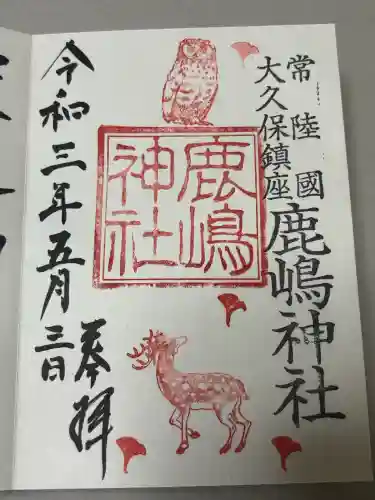 常陸國
大久保鎮座
鹿嶋神社
鹿嶋
神社
奉拝
令和三年五月三日